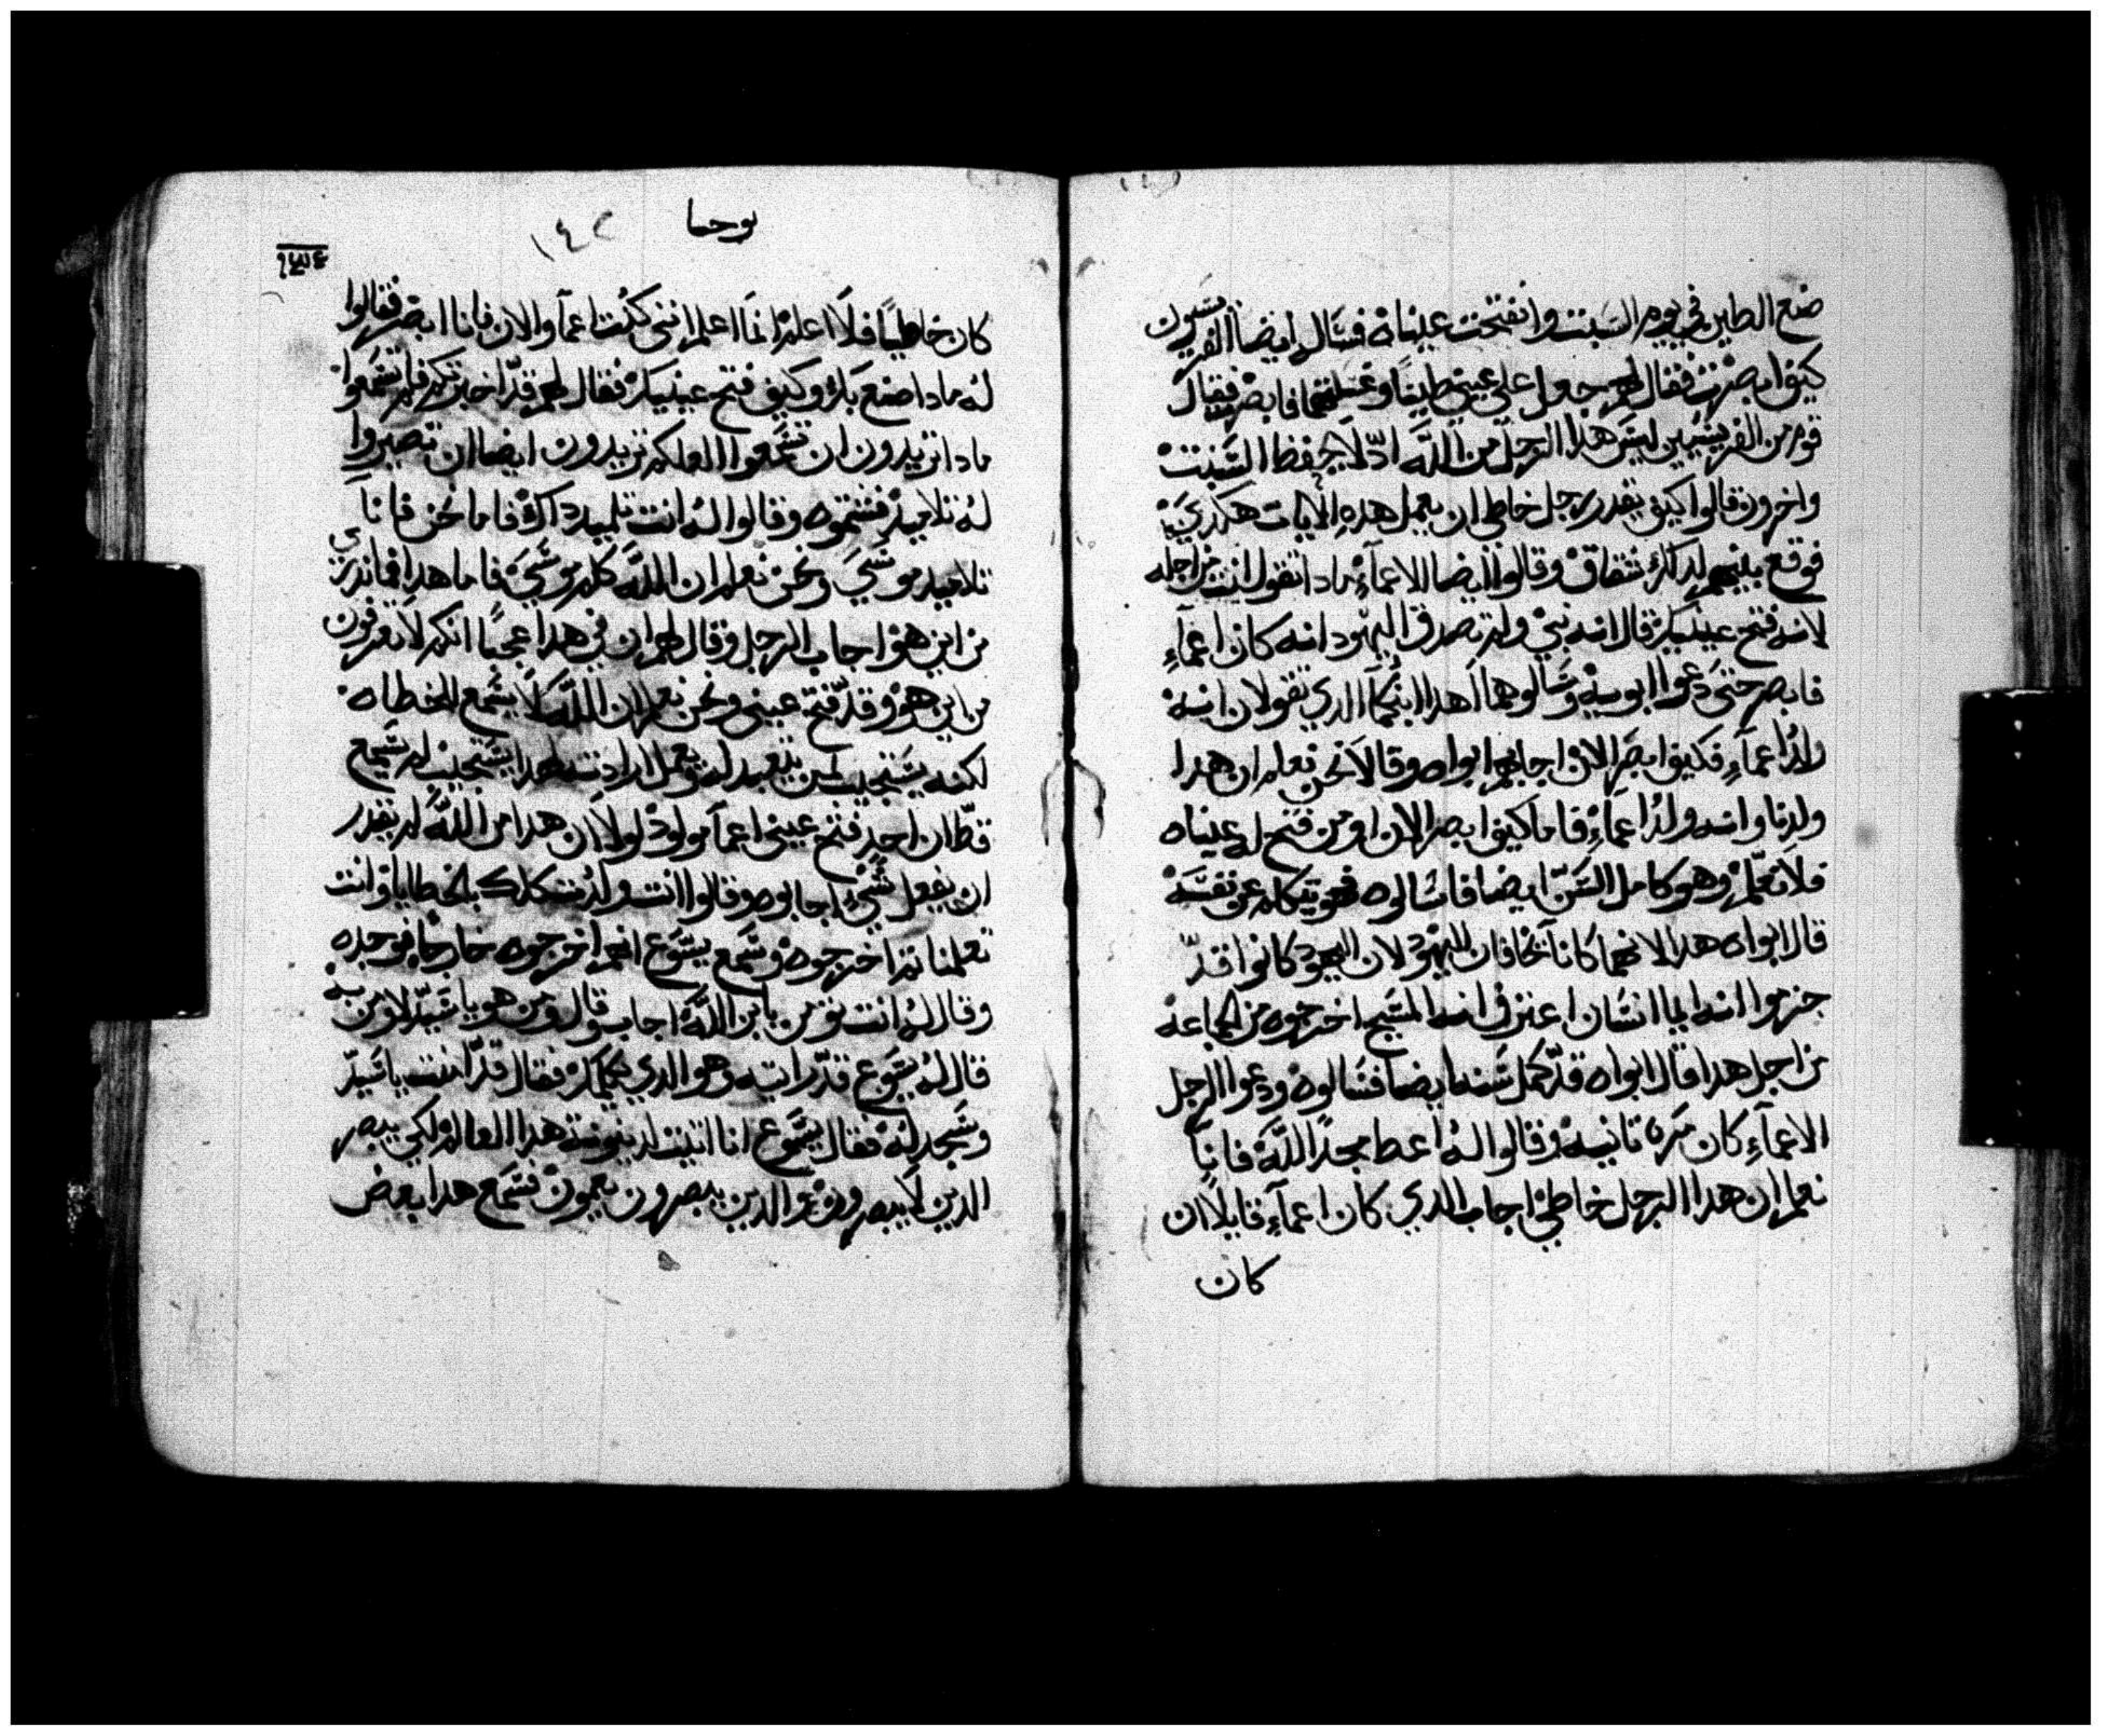 صنع الطين في يوم السبت وانفتحت عيناه فسال ايضا الفريسيون
كيف ابصرت فقال لهم جعل على عيني طينًا وغسلتهما فابصر فقال
قوم من الفريسيين ليس هدا الرجل من اللّه ادّ لا يحفظ السبت
واخرون قالوا كيف يقدر رجل خاطي ان يعمل هده الايات هكدي
فوقع بينهم لدلك شقاق وقالوا ايضا للاعماءِ مادا تقول انت من اجله
لانه فتح عينيك قال انه نبي ولم تصدق اليهود انه كان اعماءِ
فابصر حتى دعوا ابويه وسالوهما اهدا ابنكما الدي تقولان انه
ولد اعماءِ فكيف ابصر الان اجابهم ابواه وقالا نحن نعلم ان هدا
ولدنا وانه ولد اعماءِ فاما كيف ابصر الان او من فتح له عيناه
فلا نعلم وهو كامل السنّ ايضا فاسالوه فهو يتكلم عن نفسه
قال ابواه هدا لانهما كانا يخافان اليهود لان اليهود كانوا قدّ
جزموا انه ايما انسان اعترف انه المسيح اخرجوه من الجماعه
من اجل هدا قال ابواه قدّ كمل سنه ايضا فسالوه ودعوا الرجل
الاعماءِ كان مرة تانيه وقالوا له اعط مجدًا للّه فاننا
نعلم ان هدا الرجل خاطي اجاب الدي كان اعماءِ قايلاً ان
كان
يوحنا
١٤٢
كان خاطيًا فلا اعلم انما اعلم انني كنت اعما والان فانا ابصر فقالوا
له مادا صنع بك وكيف فتح عينيك فقال لهم قدّ اخبرتكم فلم تسمعوا
مادا تريدون ان تسمعوا العلكم تريدون ايضا ان تصيروا
له تلاميد فشتموه وقالوا له انت تلميد داك فاما نحن فاننا
تلاميد موسي ونحن نعلم ان اللّه كلم موسي فاما هدا فما ندري
من اين هو اجاب الرجل وقال لهم ان في هدا عجبًا انكم لا تعرفون
من اين هو وقدّ فتح عيني ونحن نعلم ان اللّه لا يسمع الخطاه
لكنه يستجيب لمن يتعبد له ويعمل ارادته لهدا يستجيب لم يسمع
قطّ ان احد فتح عيني اعما مولود لولا ان هدا من اللّه لم يقدر
ان يفعل شيء اجابوه وقالوا انت ولدت كلك بالخطايا وانت
تعلمنا تم اخرجوه وسمع يسوع انهم اخرجوه خارجًا فوجده
وقال له انت تومن بابن اللّه اجاب وقال ومن هو يا سيّد لاومن به
قال له يسوع قدّ رايته وهو الدي يكلمك فقال قدّ امنت يا سيّد
وسجد له فقال يسوع انا اتيت لدينونة هدا العالم لكي يبصر
الدين لا يبصرون والدين يبصرون يعمون فسمع هدا بعض